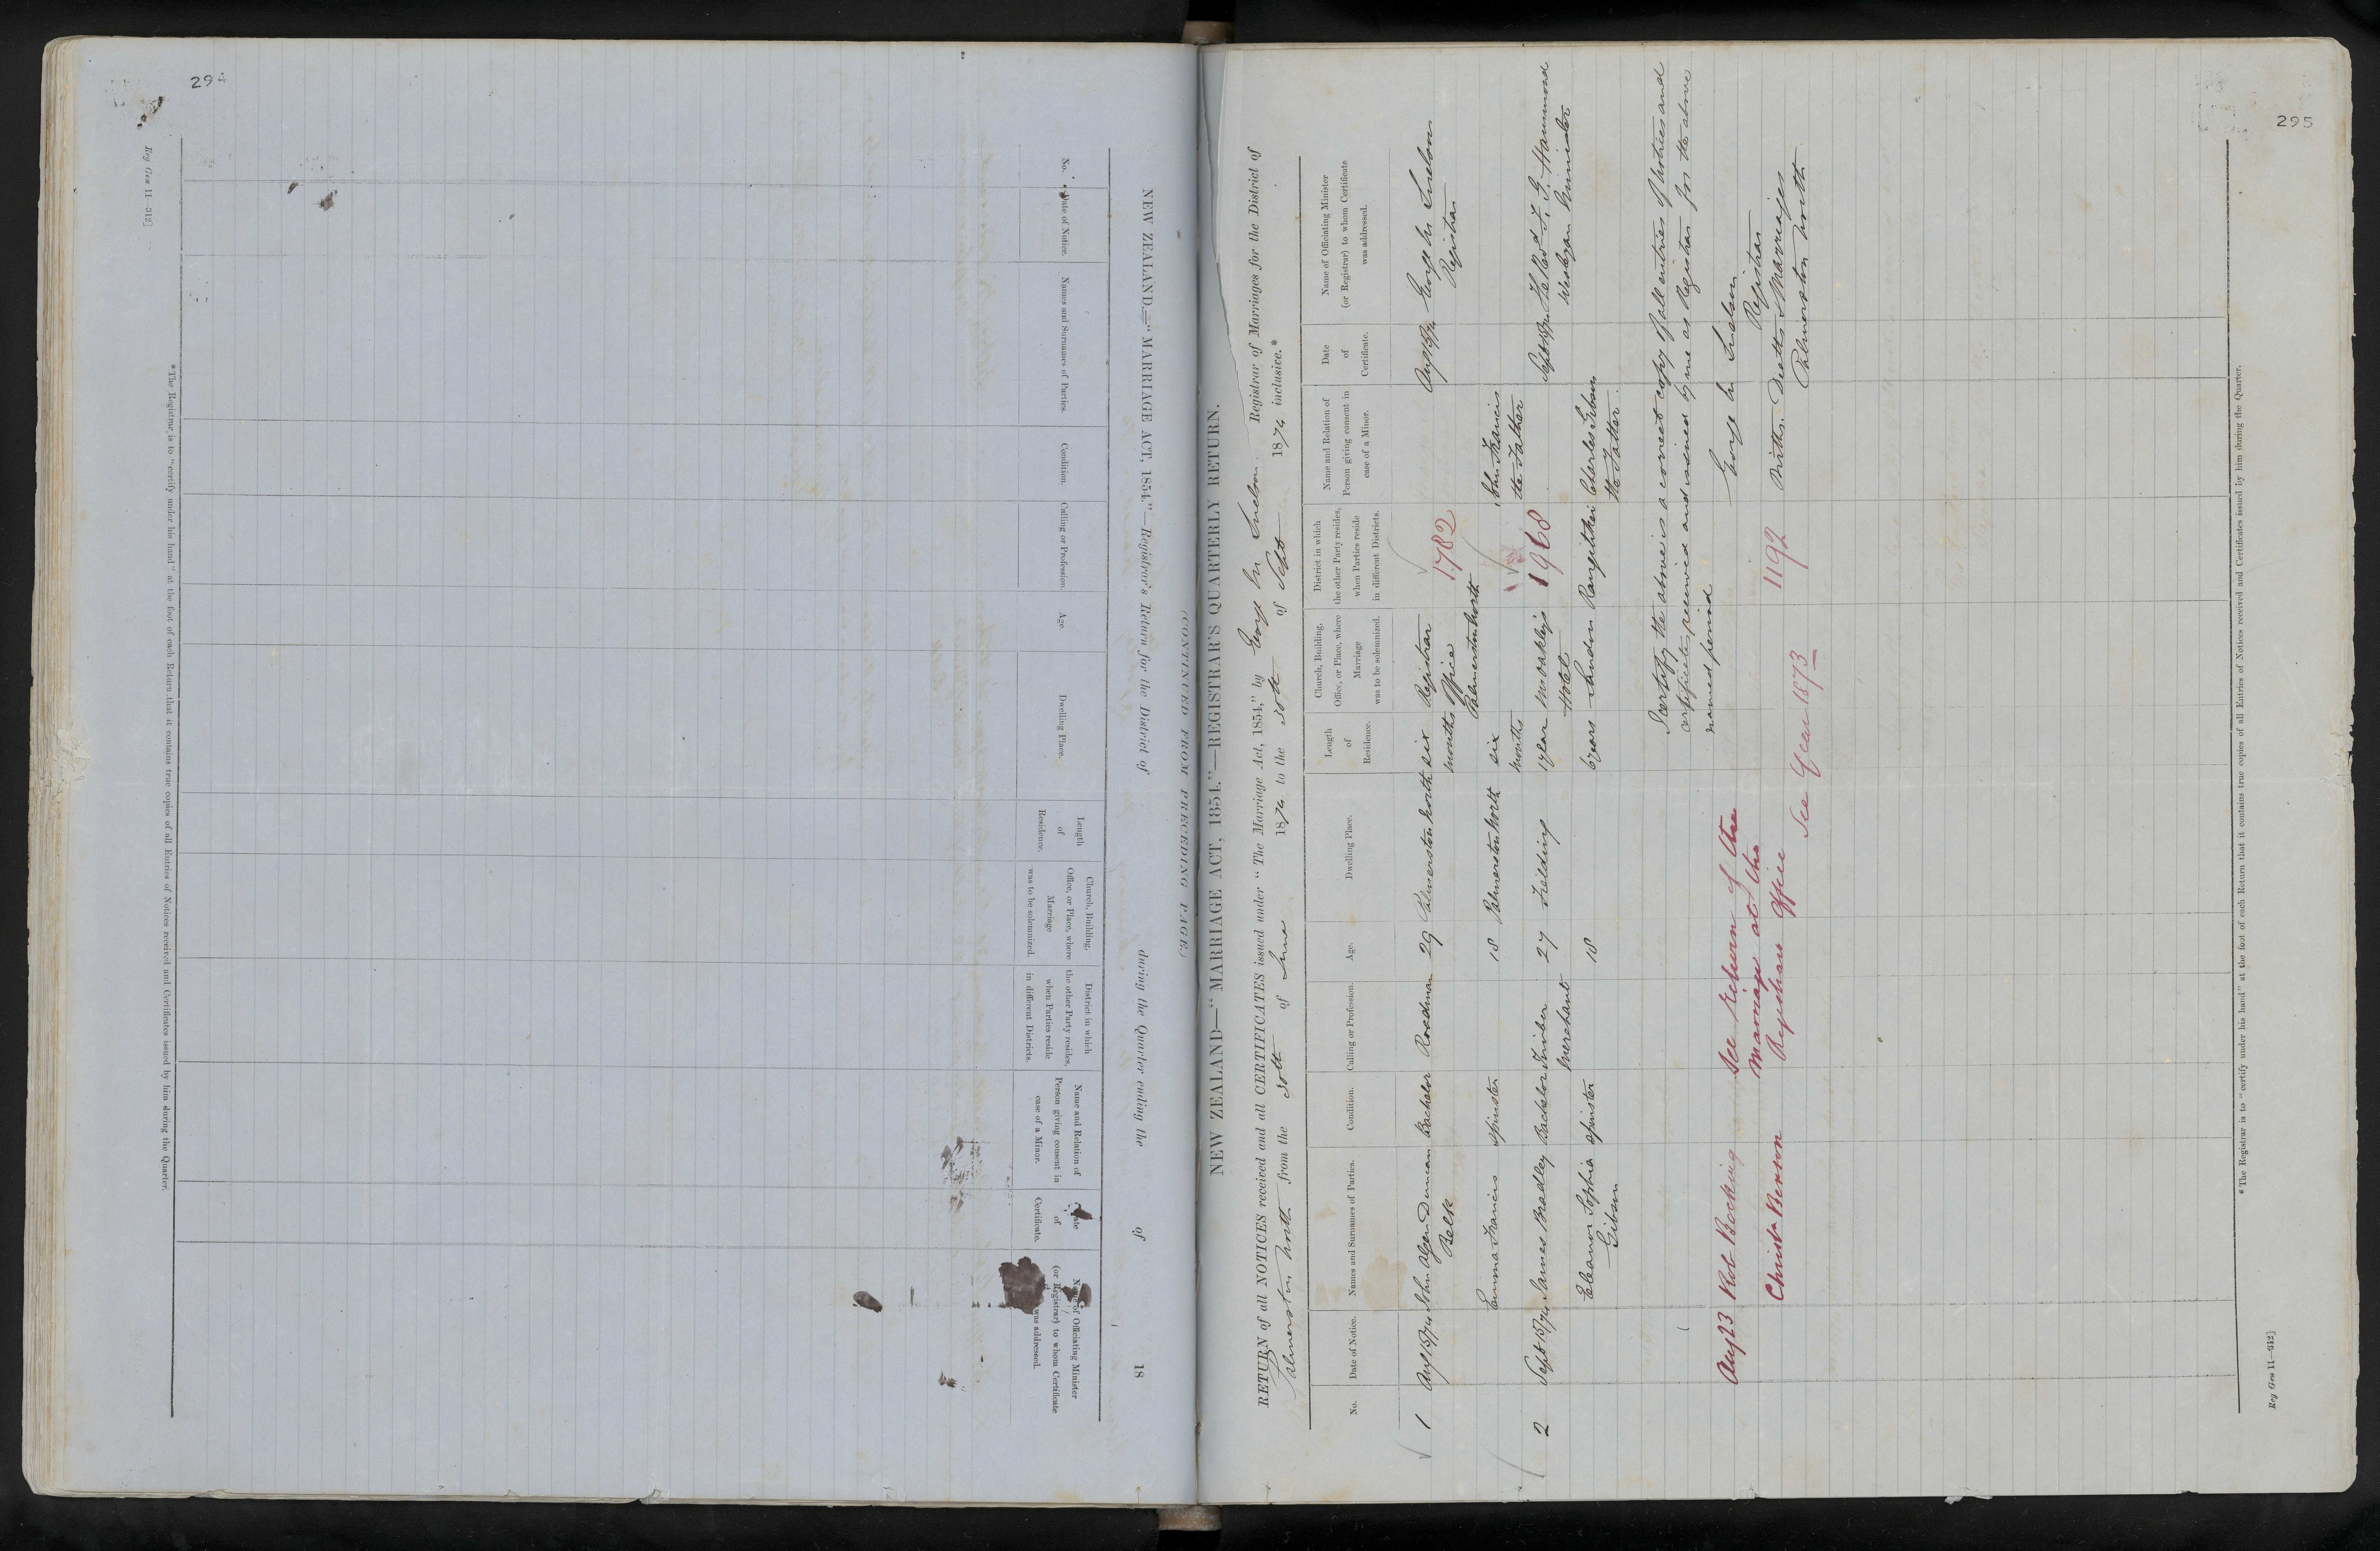 294
Reg Gen 11—312]
NEW ZEALAND.—"MARRIAGE ACT, 1854."—Registrar's Return for the District of during the Quarter ending the of 18
No.
Date of Notice.
Names and Surnames of Parties.
Condition.
Calling or Profession.
Age.
Dwelling Place.
Length
of
Residence.
Church, Building,
Office, or Place, where
Marriage
was to be solemnized.
District in which
the other Party resides,
when Parties reside
in different Districts.
Name and Relation of
Person giving consent in
case of a Minor.
Date
of
Certificate.
Name of Officiating Minister
(or Registrar) to whom Certificate
was addressed.
* The Registrar is to "certify under his hand" at the foot of each Return that it contains true copies of all Entries of Notices received and Certificates issued by him during the Quarter.
(CONTINUED FROM PRECEDING PAGE)
295
NEW ZEALAND—"MARRIAGE ACT, 1854."—REGISTRAR'S QUARTERLY RETURN.
RETURN of all NOTICES received and all CERTIFICATES issued under "The Marriage Act, 1854," by George M. Snelson Registrar of Marriages for the District of
Palmerston North from the 30th of June 1874 to the 30th of Sept 1874 inclusive.*
No.
Date of Notice.
Names and Surnames of Parties.
Condition.
Calling or Profession.
Age.
Dwelling Place.
Length
of
Residence.
Church, Building,
Office, or Place, where
Marriage
was to be solemnized.
District in which
the other Party resides,
when Parties reside
in different Districts.
Name and Relation of
Person giving consent in
case of a Minor.
Date
of
Certificate.
Name of Officiating Minister
(or Registrar) to whom Certificate
was addressed.
1 Aug 15/74 John Duncan Bachelor Roadman 29 Palmerston North six Registrar Aug 15/74 George M Snelson
Belk months Office 1782 Registrar
Palmerston North
Emma Francis Spinster 18 Palmerston North six John Francis
months the Father
2 Sept 15/74 James Bradley Bachelor Timber 27 Feilding 1 year Hotel 1968 Sept 15/74 The Revd Hammond
Merchant Wesleyan Minister
Eleanor Sophia Spinster 18 6 years London Rangitikei Charles Gibson
Gibson the Father
I certify the above is a correct copy of all entries of notices and
certificates received and issued by me as Registrar for the above
named period
George M Snelson
Registrar
Births. Deaths & Marriages
Palmerston North
Aug 23 Rob Bocking see return of the
marriage at the
Christa Benson Registrars Office 1192
See Year 1873
* The Registrar is to "certify under his hand" at the foot of each Return that it contains true copies of all Entries of Notices received and Certificates issued by him during the Quarter.
Reg Gen 11—312]